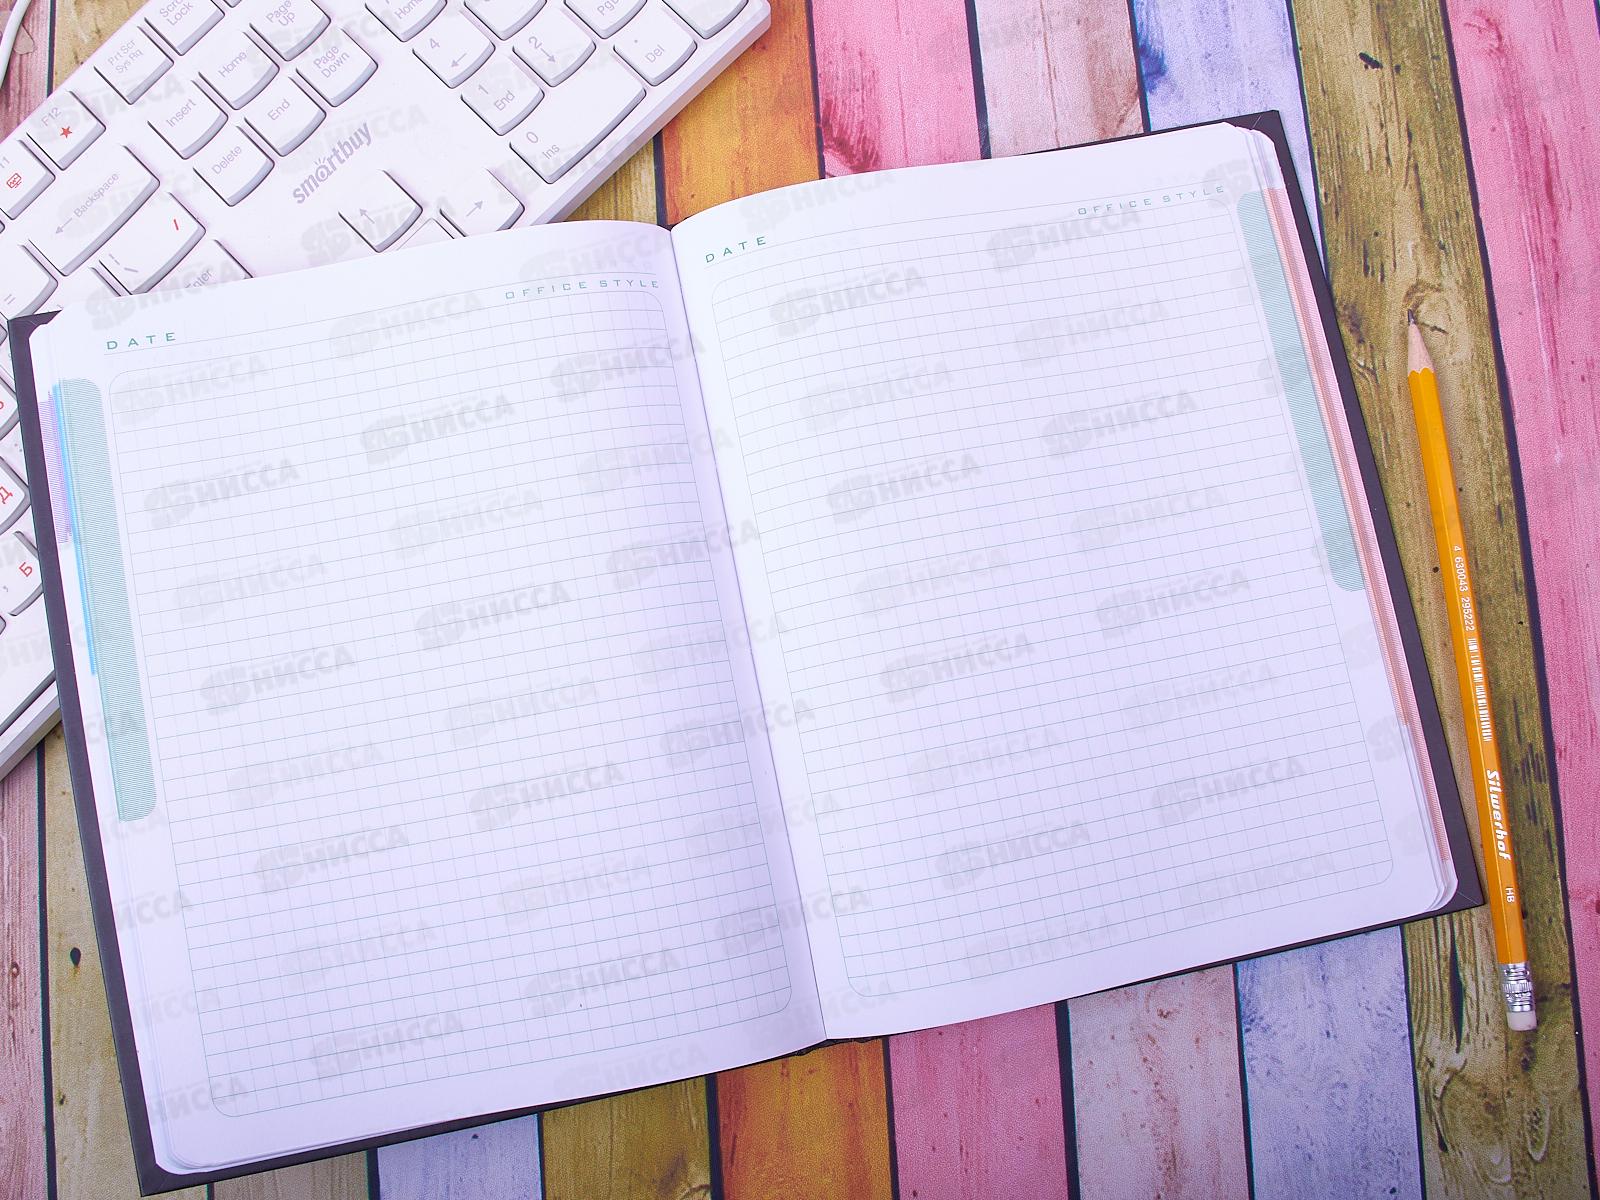 Scroll
Lock
Page
Up
Home
PgUp
Prt Scr
Sys Rq
Home
Page
Down
4
2
Del
F12
Insert
End
1
End
11
Delete
0
Ins
smartbuy
Backspace
Enter
Д
Б
DATE
OFFICE STYLE
DATE
OFFICE STYLE
4 630043 295222
Silwerhof
HB
НИССА